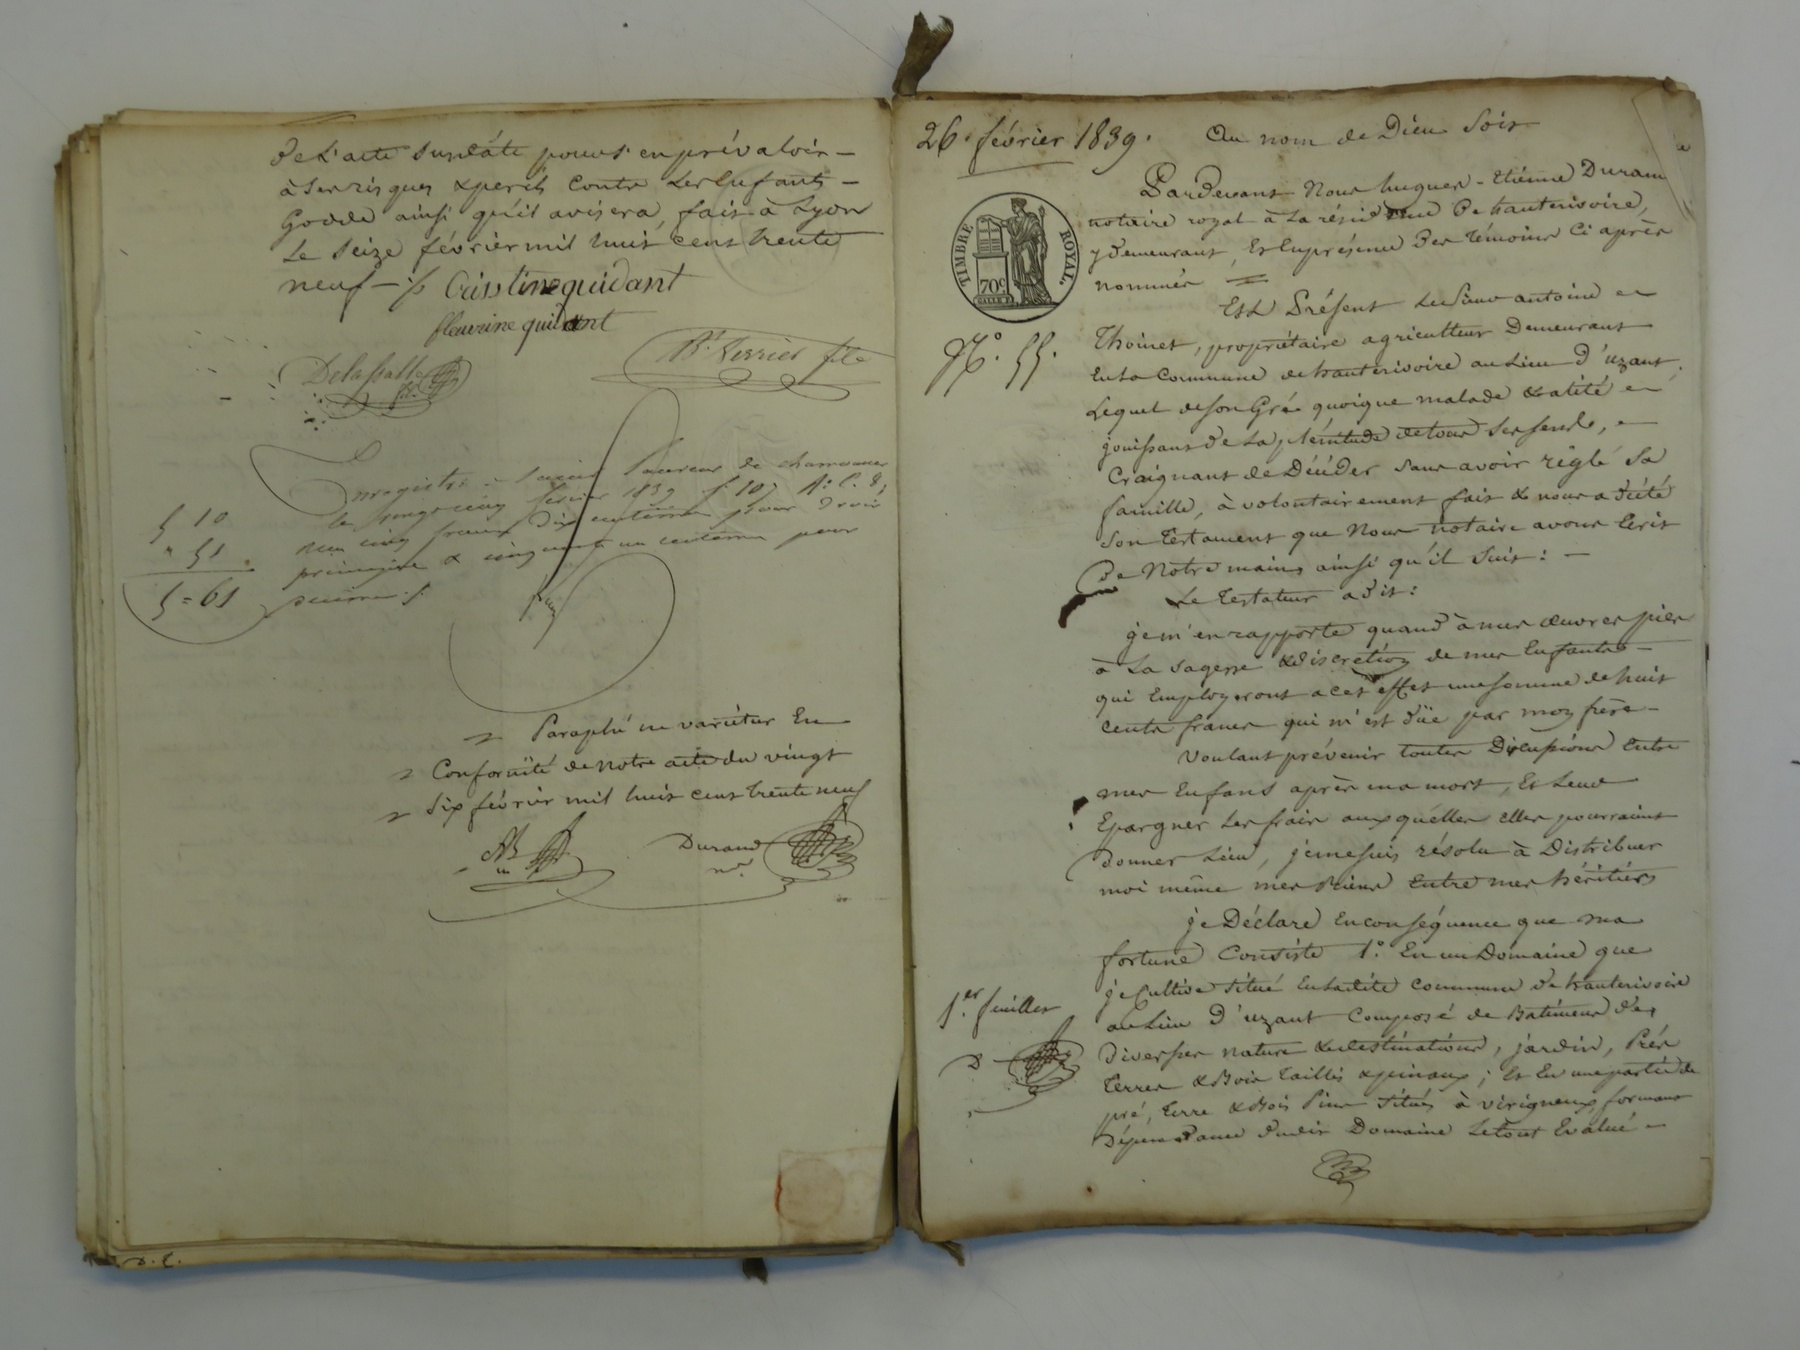 de l'acte susdaté pour s'en prévaloir —
à ses risques & perils contre les Enfants —
Godde ainsi qu'il avisera, fait à Lyon
Le seize février mil huit cent trente
neuf —
Cristine guidant
fleurine guidant
Delassalle
Bt Terrier file
Enregistré à
le vingt cinq février 1839 f° 107 Rº C. 8,
cinq francs dix centimes pour droit
& cinquante un centimes pour
5 10
" 51
5 = 61
Paraphé ne variétur En
Conformité de notre acte du vingt
six février mil huit cent trente neuf
Durand
nre
26. février 1839.
Au nom de Dieu soit
Pardevant Nous hugues - Etiénne Durand
notaire royal à la résidence De hauterivoire,
y demeurant, Et En présence Des témoins Ci après
nommés
TIMBRE ROYAL.
70c
Est Présent Le Sieur antoine
Nº. 55.
Thoinet, propriétaire agriculteur Demeurant
En la Commune de hauterivoire au Lieu D'uzant,
Lequel de son Gré quoique malade & alité
jouissant de la plénitude de tous ses sens,
Craignant de Décéder sans avoir réglé sa
famille, à volontairement fait & nous a dicté
son Testament que Nous notaire avons Ecrit
De Notre main, ainsi qu'il suit : —
Le Testateur a dit :
je m'en rapporte quand à mes œuvres pies
à La sagesse & discrétion de mes Enfants —
qui Employeront a cet effet une somme de huit
cents francs qui m'est düe par mon frère —
Voulant prévenir toutes Discussions Entre
mes Enfans après ma mort, Et Leur
Epargner Les frais auxquelles elles pourraient
donner Lieu, je me suis résolu à Distribuer
moi même mes Biens Entre mes héritiers
je Déclare En conséquence que ma
fortune Consiste 1.º En un Domaine que
je Cultive situé En La dite Commune de hauterivoire
1.er feuillet
au Lieu D'uzant Composé de Batiments de
D
diverses nature & destinations, jardin, Prés
Terres & Bois Taillis & pinaux ; Et En une partie de
pré, terre & Bois Pins situés à virigneux, formant
Dépendance dudit Domaine Le tout Evalué